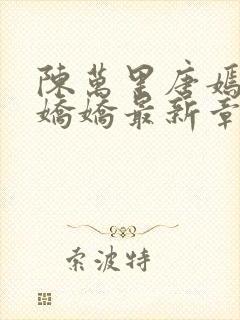 陳萬里唐嫣
嬌嬌最新章
索波特